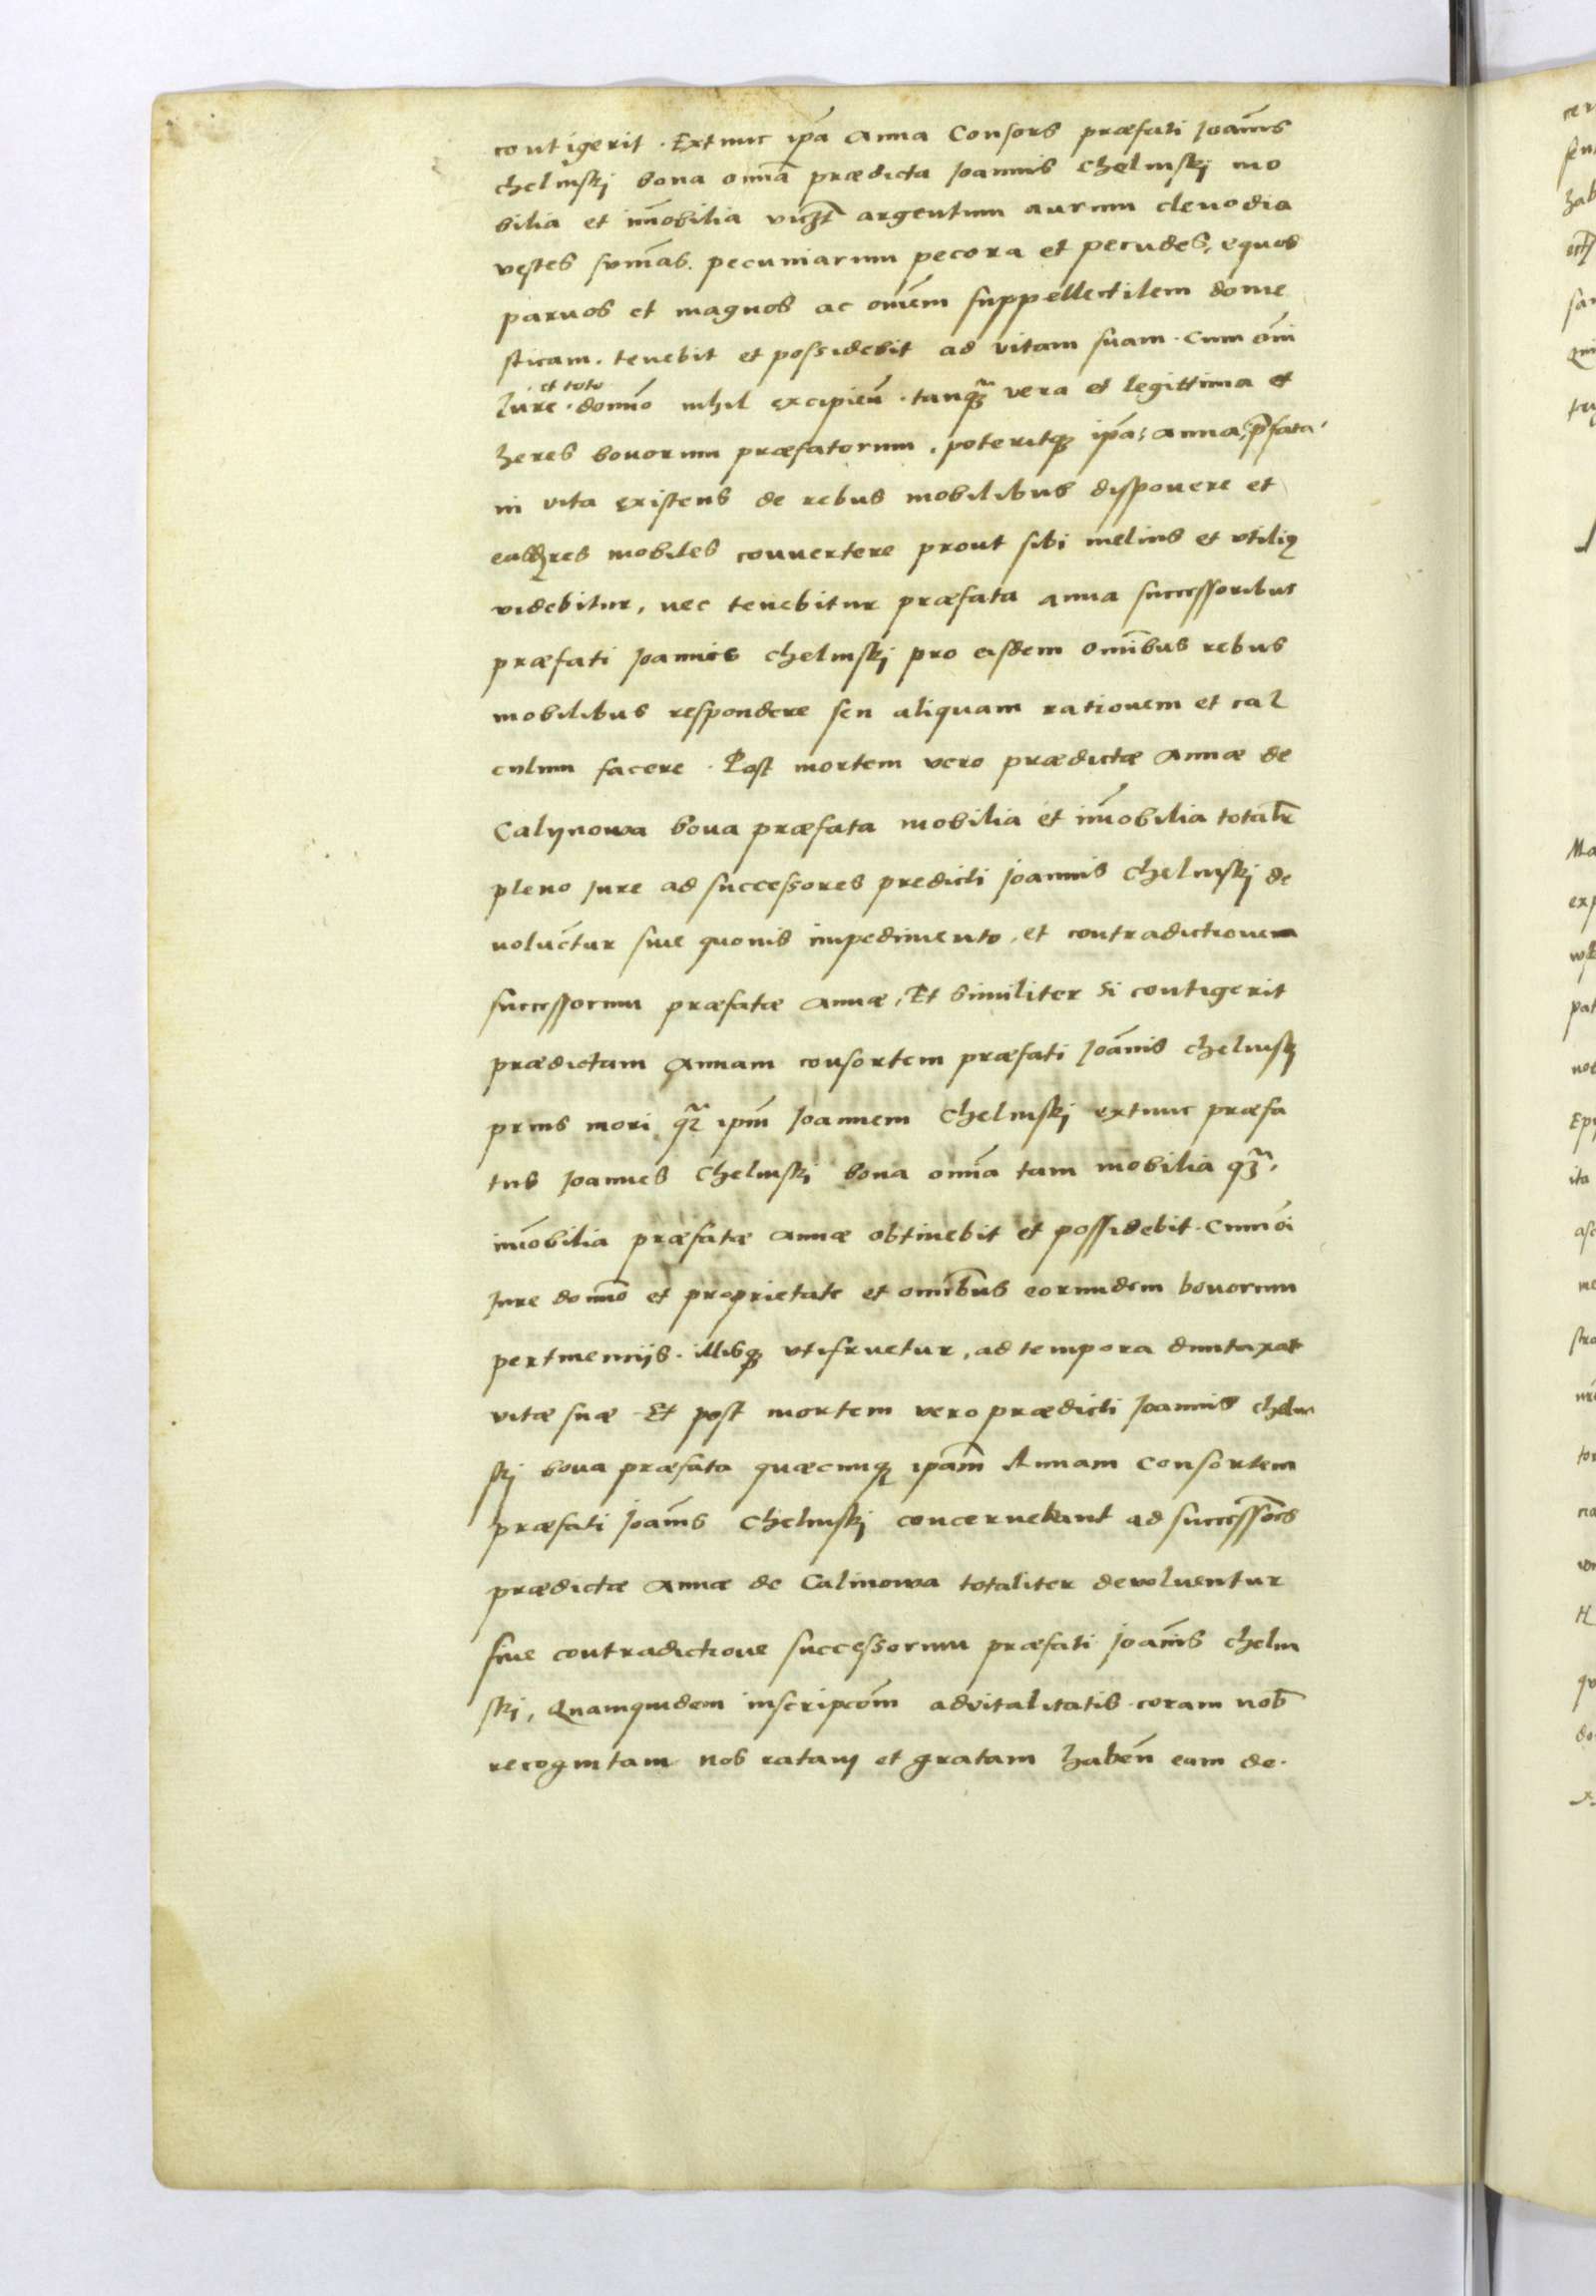 contigerit. Extunc ip̃a Anna Consors præfati Joãnis
chelmskj bona om̃ia prædicta Joannis Chelmskj mo
bilia et im̃obilia vicz̃t argentum aurum clenodia
vestes sum̃as pecuniarum pecora et pecudes, equos
paruos et magnos ac om̃em suppellectilem dome
sticam. tenebit et possidebit ad vitam suam. cum om̃i
Jure et toto domĩo nihil excipień. tanqz̃ vera et legittima et
heres bonorum præfatorum. poteritqꝫ ip̃a Anna p̃fata
in vita existens de rebus mobilibus disponere et
easdꝫ res mobiles conuertere prout sibi melius et vtiliꝰ
videbitur, nec tenebitur præfata anna successoribus
præfati Joannis chelmskj pro eisdem om̃ibus rebus
mobilibus respondere seu aliquam rationem et cal
culum facere. Post mortem vero prædictæ Annæ de
Calynowa bona præfata mobilia et im̃obilia totalr̃
pleno Jure ad successores predicti Joannis Chelmskj de
uoluẽtur sine quouis impedimento, et contradictionem
successorum præfatæ Annæ, Et similiter si contigerit
prædictam Annam consortem præfati Joãnis chelmskj
prius mori qꝫ̃ ip̃m Joannem Chelmskj extunc præfa
tus Joannes Chelmskj bona om̃ia tam mobilia qꝫ̃
im̃obilia præfatæ Annæ obtinebit et possidebit. Cum õi
Jure domĩo et proprietate et om̃ibus eorundem bonorum
pertinencijs. illisqꝫ vtifruetur, ad tempora duntaxat
vitæ suæ Et post mortem vero prædicti Joannis chelm
skj bona præfata quæcunqꝫ ip̃am Annam Consortem
præfati Joãnis Chelmskj concernebant ad successores
prædictæ Annæ de Calinowa totaliter devoluentur
sine contradictione successorum præfati Joãnis chelm
skj, Quamquidem inscripcõm aduitalitatis coram nob̃
recognitam nos ratam et gratam habeñ eam de.